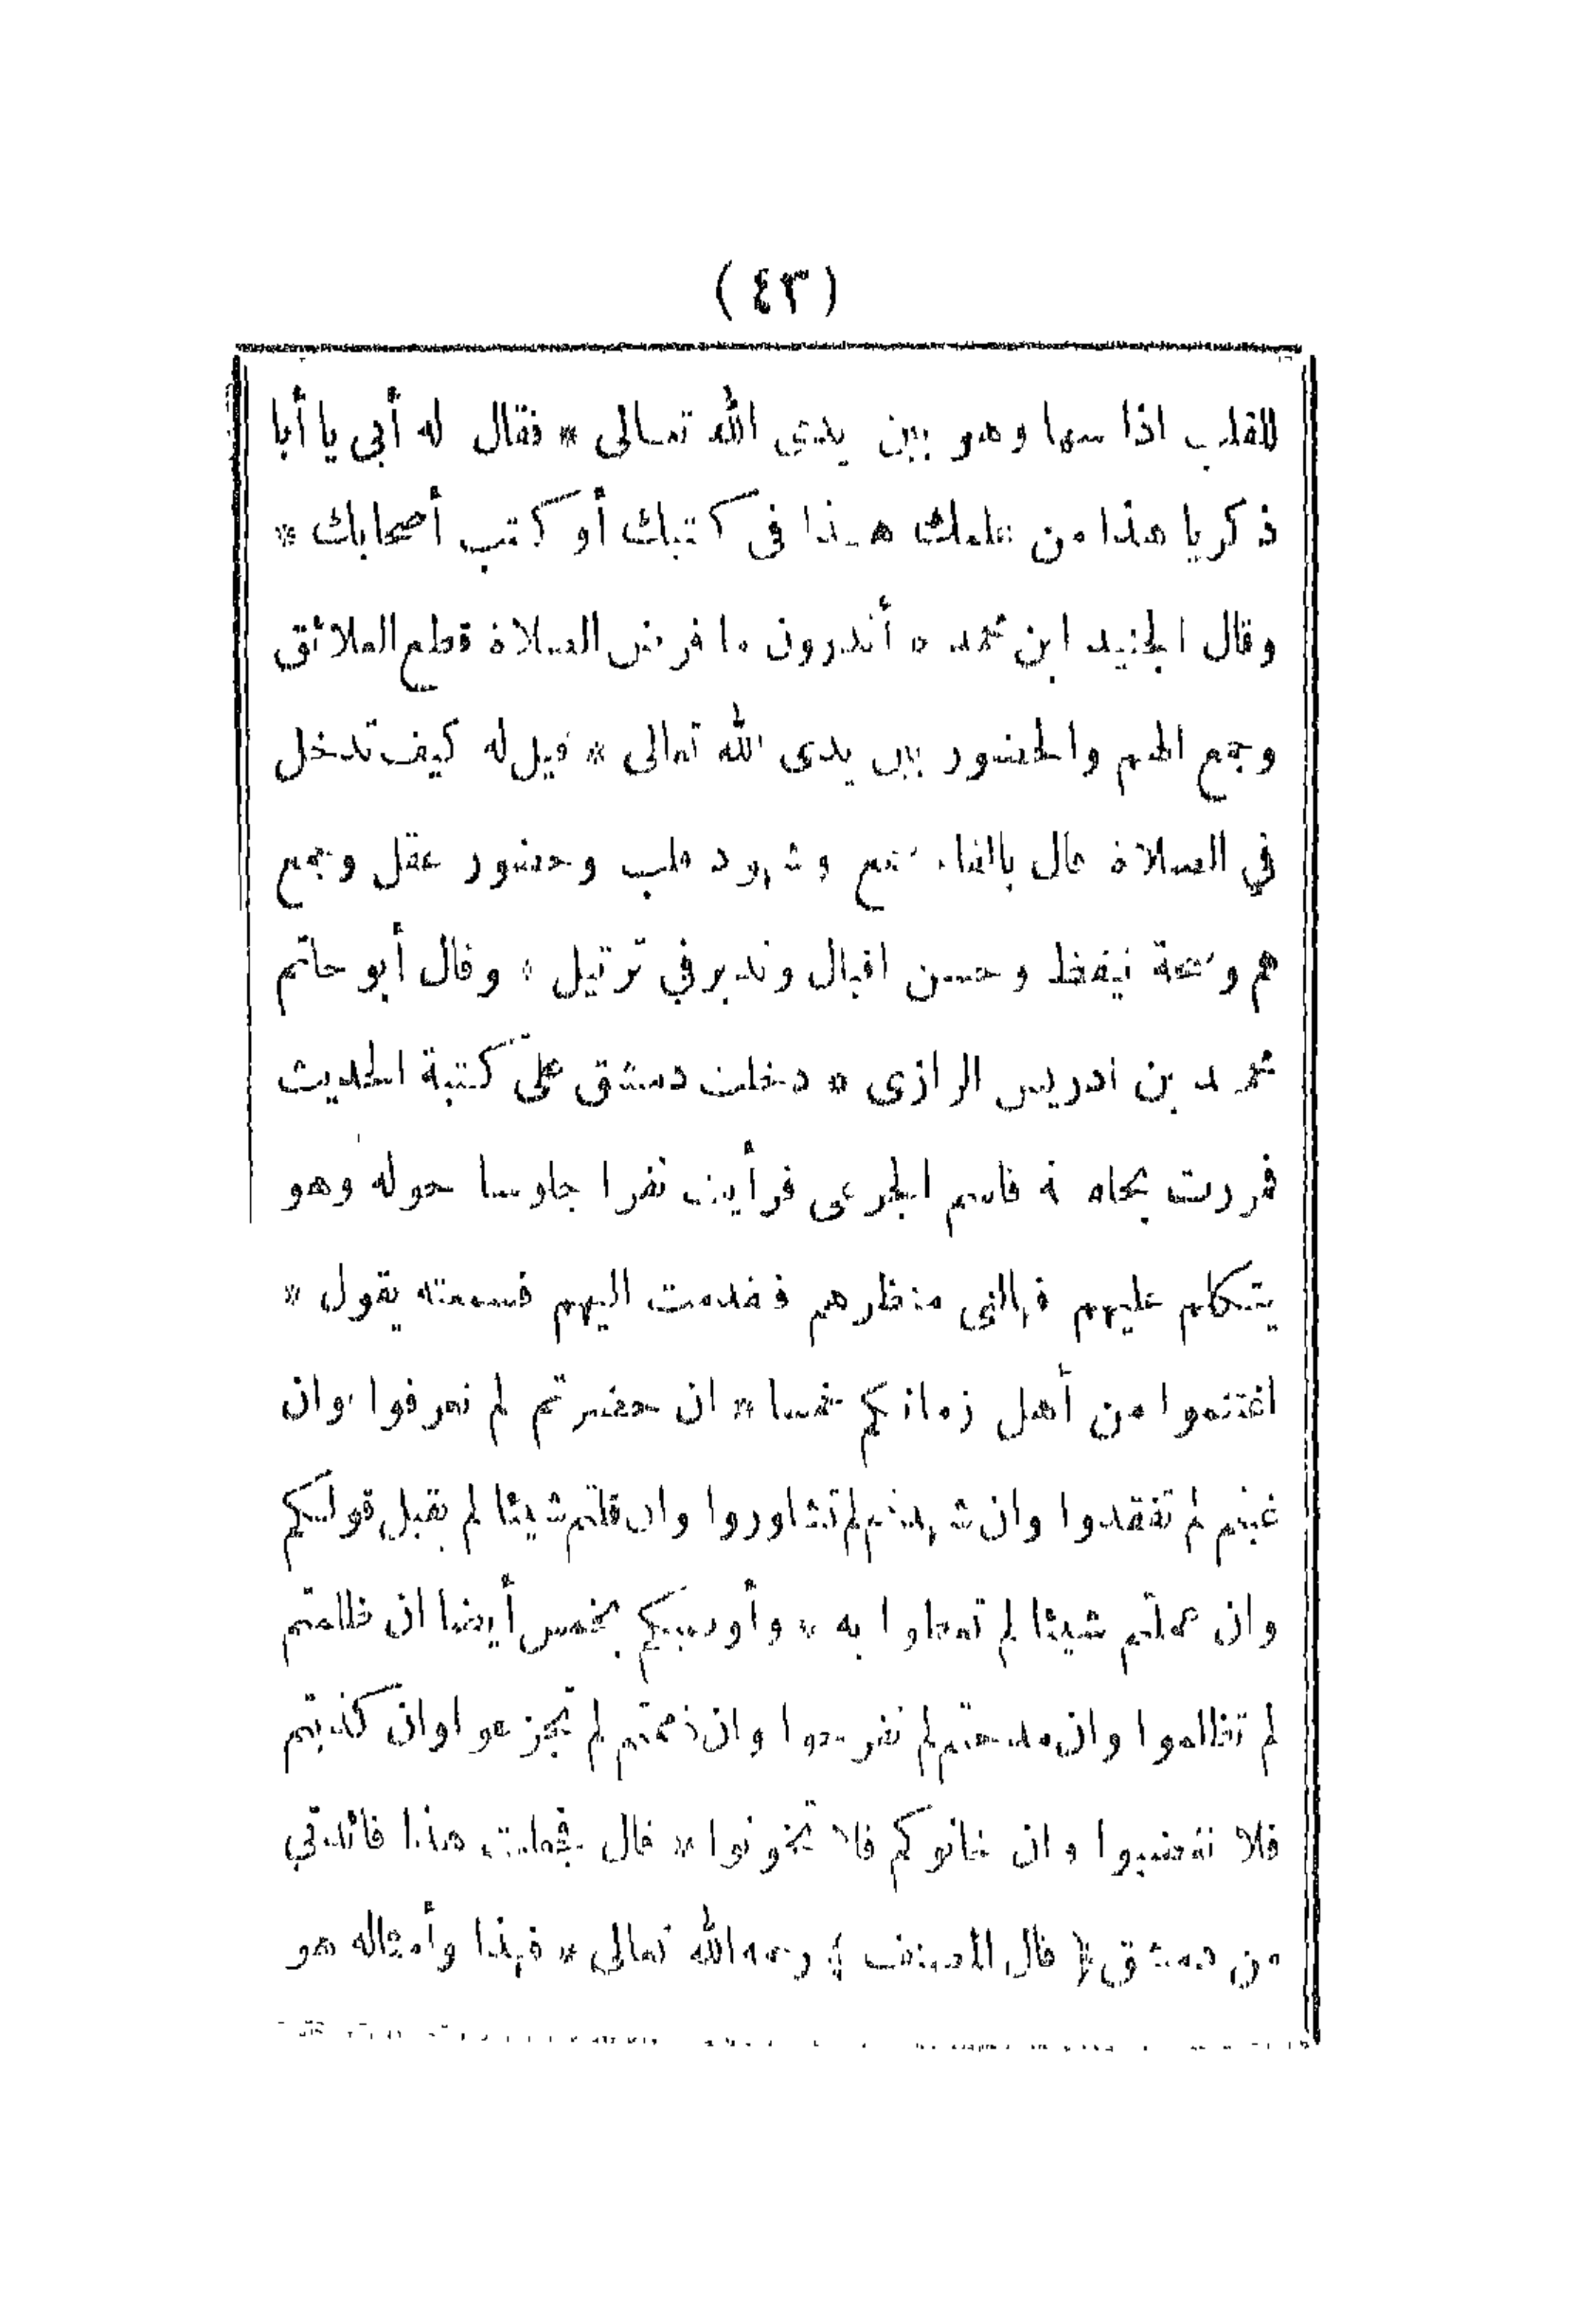 (٤٣)
للقلب اذا سها وهو بين يدى الله تعالى * فقال له أبى يا أبا
ذكريا هذا من علمك هذا فى كتبك أو كتب أصحابك *
وقال الجنيد ابن محمد * أتدرون ما فرض الصلاة قطع العلائق
وجمع الهم والحضور بين يدى الله تعالى * قيل له كيف تدخل
في الصلاة قال بالقاء سمع وشهود قلب وحضور عقل وجمع
هم وصحة تيقظ وحسن اقبال وتدبر في ترتيل * وقال أبو حاتم
محمد بن ادريس الرازى * دخلت دمشق على كتبة الحديث
فمررت بحلقة قاسم الجرعى فرأيت نفرا جلوسا حوله وهو
يتكلم عليهم فهالنى منظرهم فتقدمت اليهم فسمعته يقول *
اغتنموا من أهل زمانكم خمسا * ان حضرتم لم تعرفوا وان
غبتم لم تفقدوا وان شهدتم لم تشاوروا وان قلتم شيئا لم يقبل قولكم
وان عملتم شيئا لم تعطوا به * وأوصيكم بخمس أيضا ان ظلمتم
لم تظلموا وان مدحتم لم تفرحوا وان ذممتم لم تجزعوا وان كذبتم
فلا تغضبوا وان خانوكم فلا تخونوا * قال فجعلت هذا فائدتي
من دمشق ﴿ قال المصنف ﴾ رحمه الله تعالى * فهذا وأمثاله هو